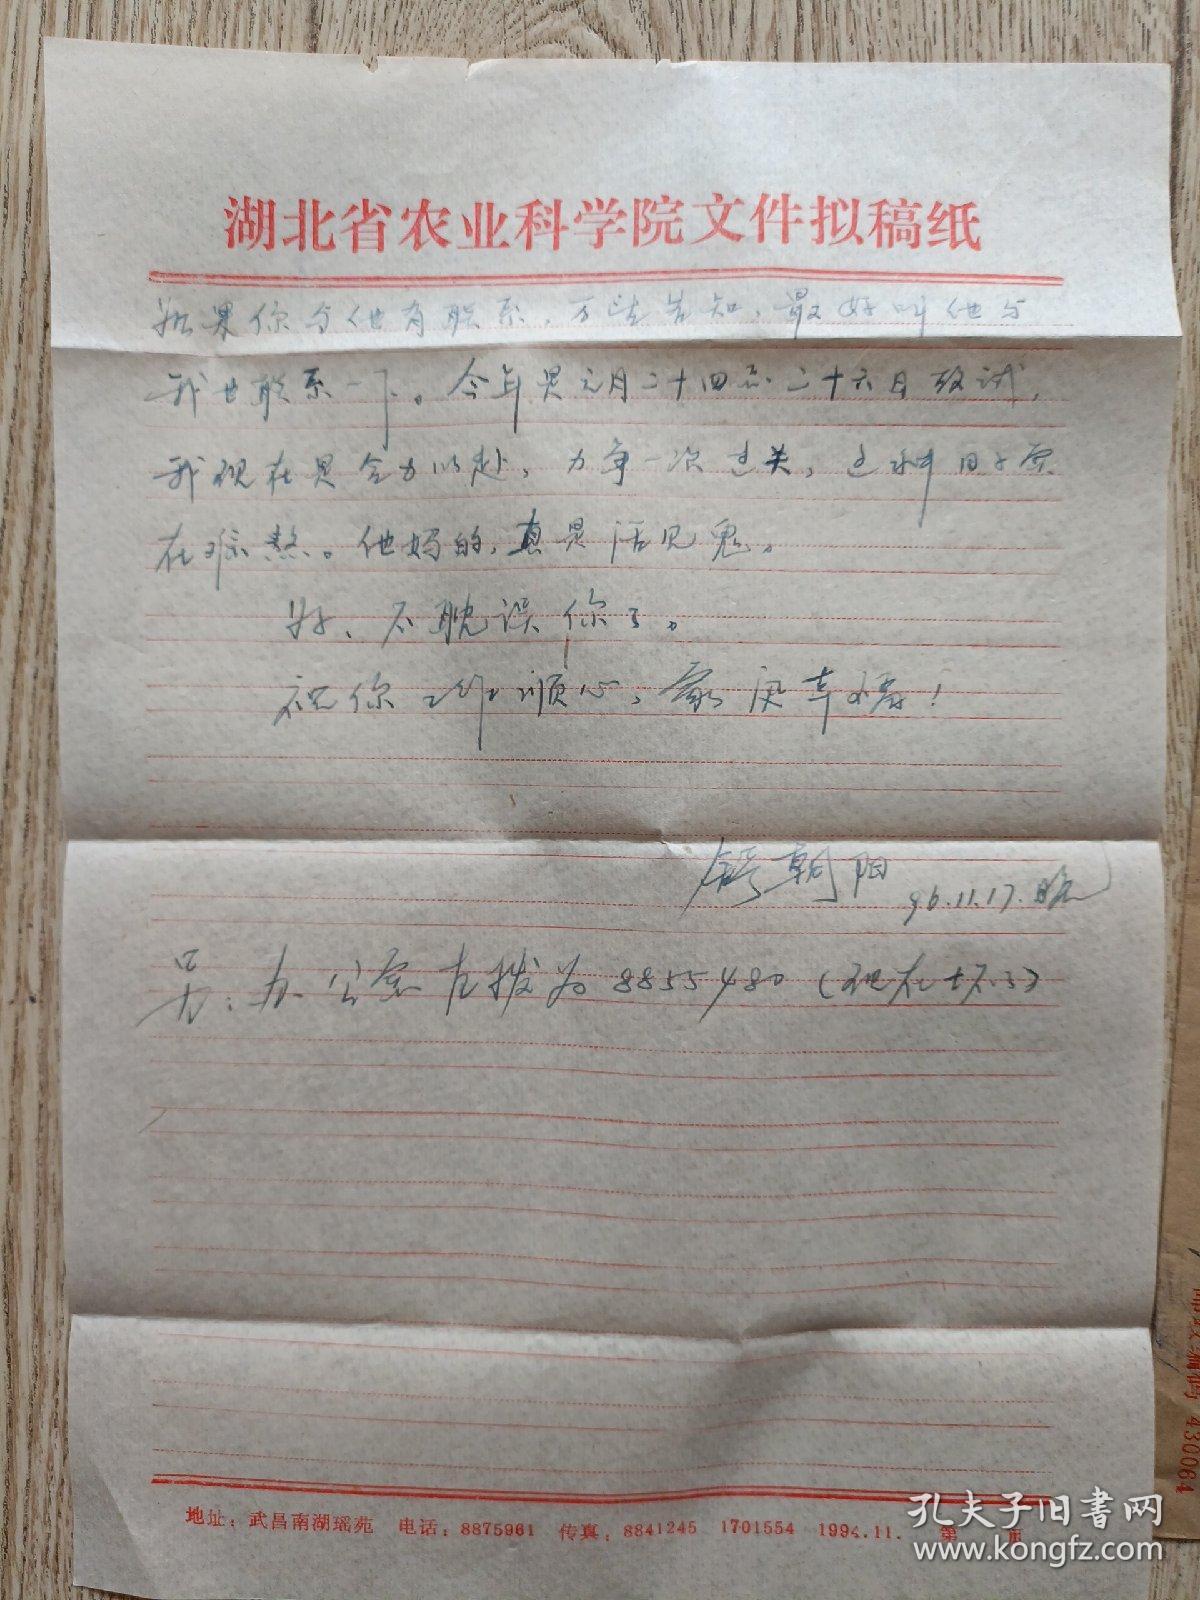 湖北省农业科学院文件拟稿纸
如果你与他有联系，万望告知，最好叫他与
我也联系一下。今年是元月二十四至二十六日考试，
我现在是全力以赴，力争一次过关，这种日子实
在难熬。他妈的，真是活见鬼。
好、不耽误你了。
祝你工作顺心，家庭幸福！
朝阳 96.11.17.晚
另：办公室直拨为8855480（现在坏了）
邮政编码 430064
地址：武昌南湖瑶苑 电话：8875961 传真：8841245 1701554 1994.11. 第 页
孔夫子旧书网
www.kongfz.com